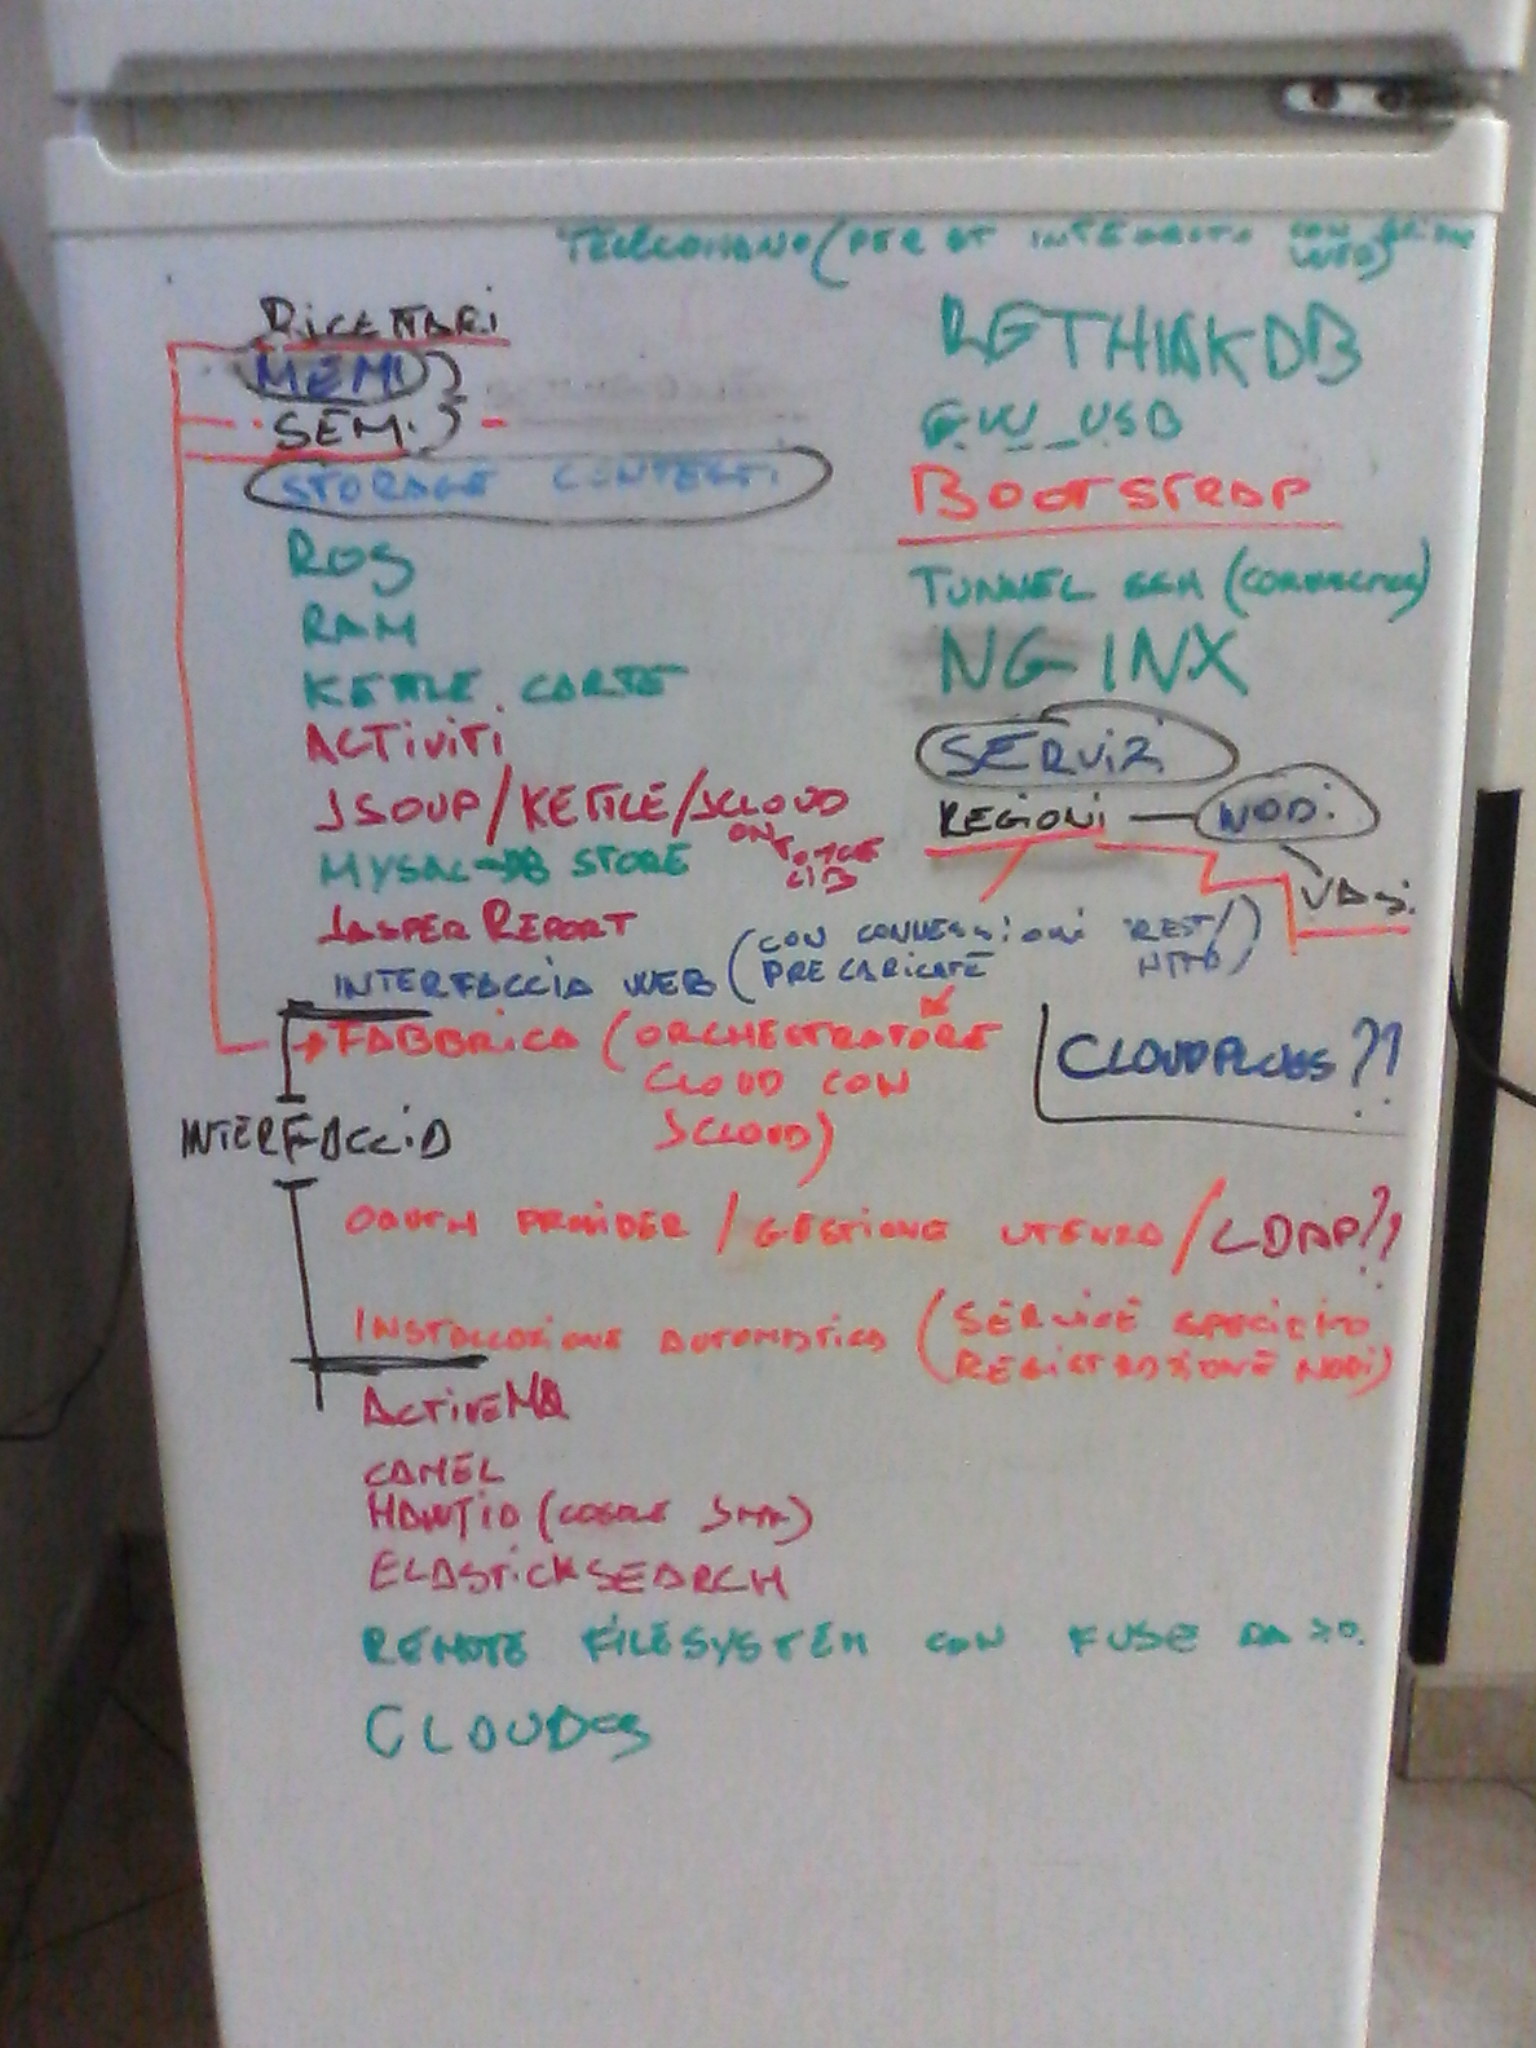 TELECOMANO (PER BT INTEGRATO CON
WEB)
RICETTARI
MEMI
SEMI
STORAGE CONTESTI
ROS
RAM
KETTLE CARTE
ACTIVITI
JSOUP/KETTLE/JCLOUD
MYSQL→DB STORE
JASPER REPORT
INTERFACCIA WEB (CON CONNESSIONI REST/
PRECARICATE HTTP)
→ FABBRICA (ORCHESTRATORE
CLOUD CON
JCLOUD)
INTERFACCIA
OAUTH PROVIDER / GESTIONE UTENZA / LDAP??
INSTALLAZIONE AUTOMATICA (SERVICE SPECIFICO
REGISTRAZIONE NODI)
ACTIVEMQ
CAMEL
HAWTIO
ELASTICKSEARCH
REMOTE FILESYSTEM CON FUSE
CLOUD9
RETHINKDB
GW_USB
BOOTSTRAP
TUNNEL SSH
NGINX
SERVIZI
REGIONI — NODI
VASI
CLOUDPLUGS??